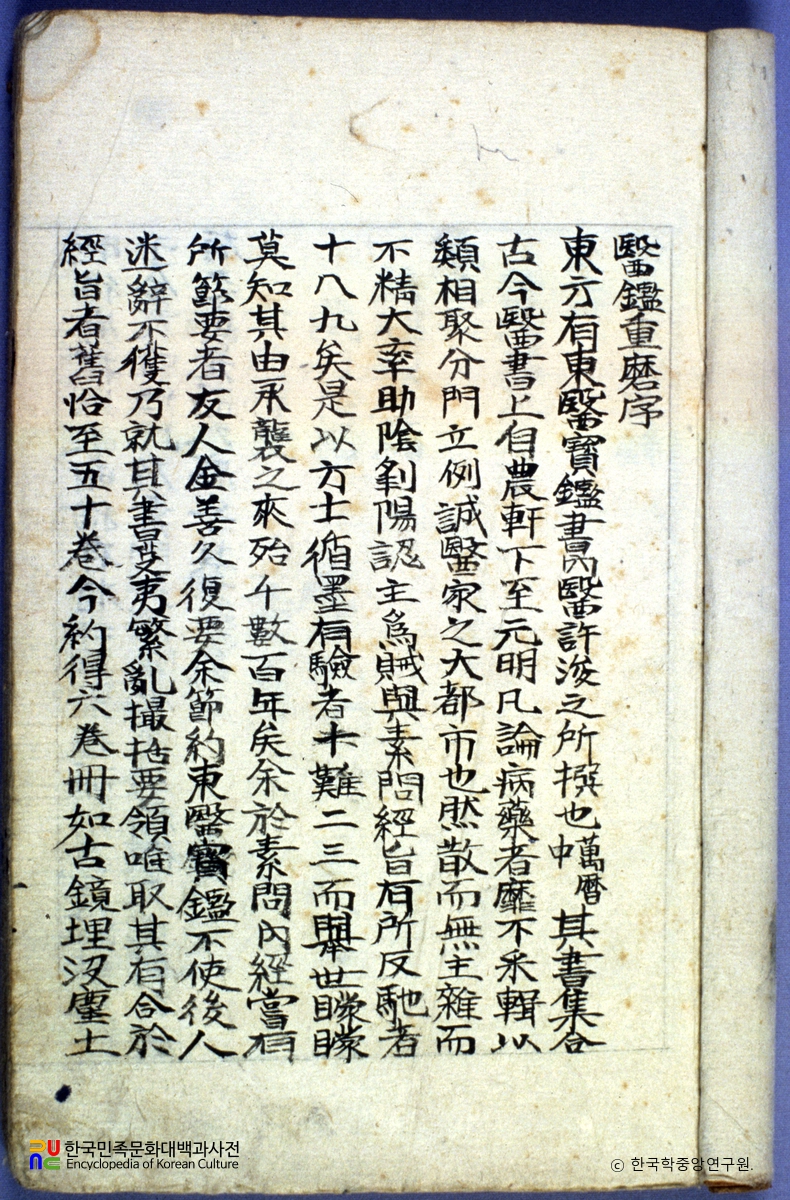 醫鑑重磨序
東方有東醫寶鑑書內醫許浚之所撰也萬曆中其書集合
古今醫書上自農軒下至元明凡論病藥者靡不采輯以
類相聚分門立例誠醫家之大都市也然散而無主雜而
不精大率助陰剝陽認主爲賊與素問經旨有所反馳者
十八九矣是以方士循墨有驗者十難二三而與世矇矇
莫知其由承襲之來殆千數百年矣余於素問內經嘗有
所節要者友人金善久復要余節約東醫寶鑑不使後人
迷辭不獲乃就其書芟夷繁亂撮括要領唯取其有合於
經旨者舊恰至五十卷今約得六卷冊如古鏡埋沒塵土
한국민족문화대백과사전
Encyclopedia of Korean Culture
ⓒ 한국학중앙연구원.